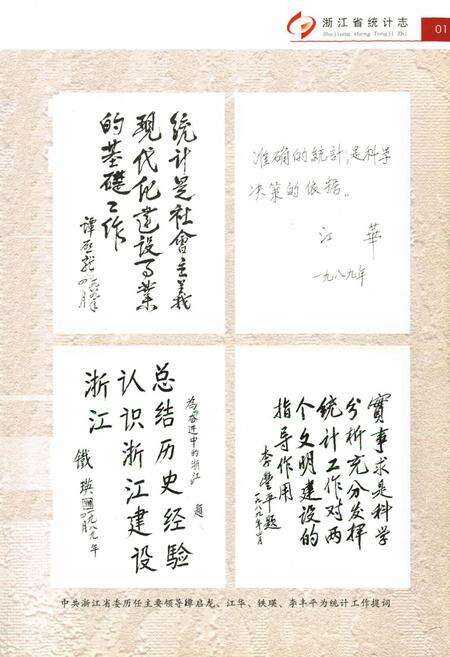 浙江省统计志
Zhejiang sheng Tongji Zhi
01
统计是社會主義
现代化建设事業
的基礎工作
谭启龙
一九八九年
四月
准确的統計,是科学
决策的依据。
江華
一九八九年
为《奋进中的浙江》题
总结历史经验
认识浙江建设
浙江
铁瑛
一九八九年
四月
實事求是科学
分析充分发挥
统计工作对两
个文明建设的
指导作用
李豐平题
一九八九年
中共浙江省委历任主要领导谭启龙、江华、铁瑛、李丰平为统计工作提词